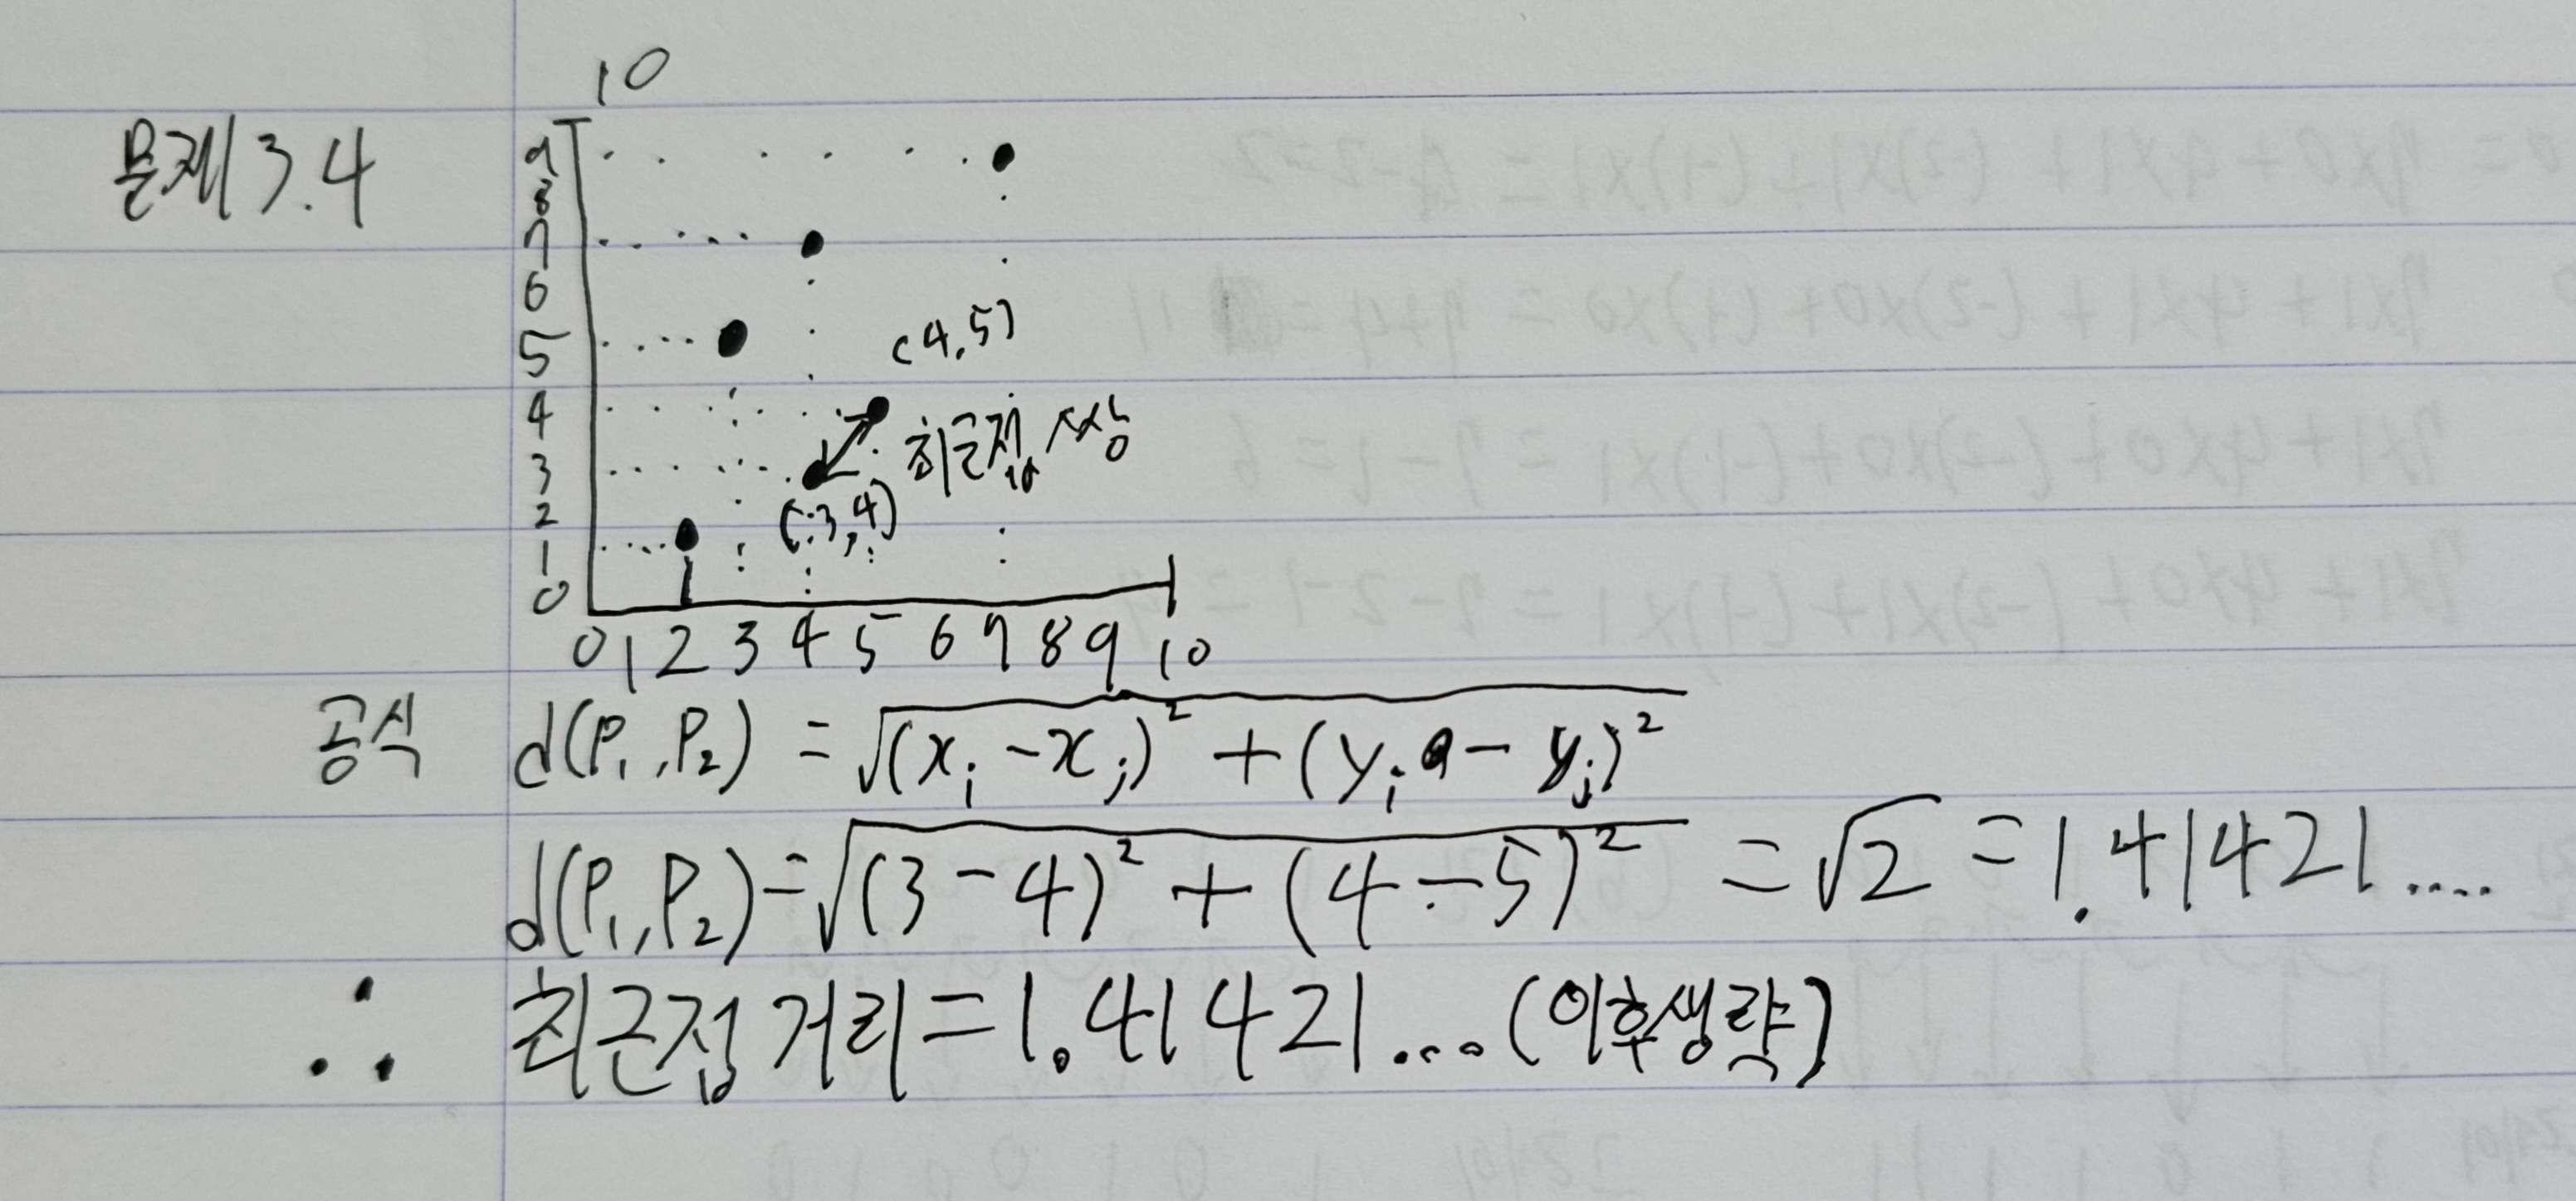 문제 3.4
10
9
8
7
6
5
4
3
2
1
0
(4,5)
최근접 쌍
(3,4)
0 1 2 3 4 5 6 7 8 9 10
공식 d(P₁,P₂) = √(xᵢ-xⱼ)² + (yᵢ - yⱼ)²
d(P₁,P₂) = √(3-4)² + (4-5)² = √2 = 1.41421....
∴ 최근접 거리 = 1.41421...(이후생략)